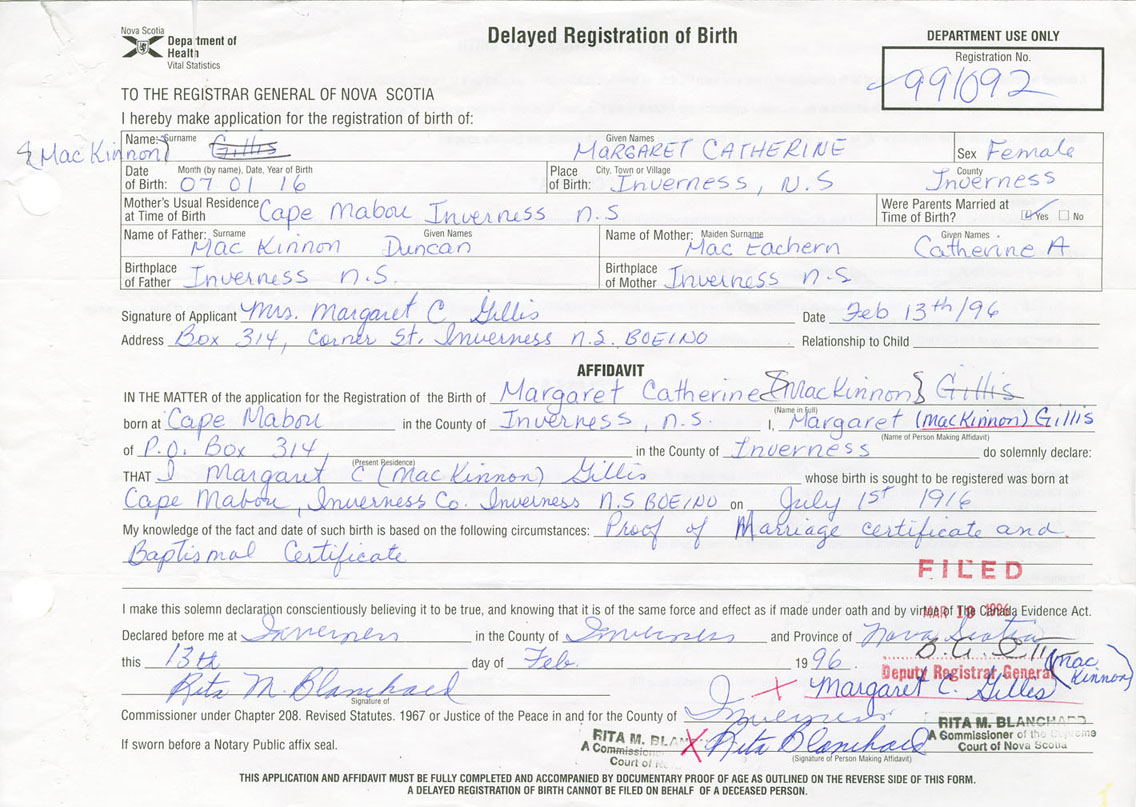 Nova Scotia
Department of
Health
Vital Statistics
Delayed Registration of Birth
DEPARTMENT USE ONLY
Registration No.
991092
TO THE REGISTRAR GENERAL OF NOVA SCOTIA
I hereby make application for the registration of birth of:
{MacKinnon} Name: Surname Gillis Given Names MARGARET CATHERINE Sex Female
Date of Birth: Month (by name), Date, Year of Birth 07 01 16 Place of Birth: City, Town or Village Inverness, N.S County Inverness
Mother's Usual Residence at Time of Birth Cape Mabou Inverness n.s Were Parents Married at Time of Birth? Yes No
Name of Father: Surname Mac Kinnon Given Names Duncan Name of Mother: Maiden Surname Mac Eachern Given Names Catherine A
Birthplace of Father Inverness n.s. Birthplace of Mother Inverness n.s
Signature of Applicant Mrs. Margaret C Gillis Date Feb 13th/96
Address Box 314, Corner St. Inverness n.s. BOEINO Relationship to Child
AFFIDAVIT
IN THE MATTER of the application for the Registration of the Birth of Margaret Catherine {MacKinnon} Gillis
(Name in Full)
born at Cape Mabou in the County of Inverness, n.s. I, Margaret (MacKinnon) Gillis
(Name of Person Making Affidavit)
of P.O. Box 314, in the County of Inverness do solemnly declare:
(Present Residence)
THAT I Margaret C (Mac Kinnon) Gillis whose birth is sought to be registered was born at
Cape Mabou, Inverness Co. Inverness N.S BOEINO on July 1st 1916
My knowledge of the fact and date of such birth is based on the following circumstances: Proof of Marriage certificate and
Baptismal Certificate
FILED
MAR 1996
I make this solemn declaration conscientiously believing it to be true, and knowing that it is of the same force and effect as if made under oath and by virtue of The Canada Evidence Act.
Declared before me at Inverness in the County of Inverness and Province of Nova Scotia
this 13th day of Feb. 1996.
Deputy Registrar General
Rita M. Blanchard Margaret C. Gillis (Mac Kinnon)
Signature of
Commissioner under Chapter 208. Revised Statutes. 1967 or Justice of the Peace in and for the County of Inverness
RITA M. BLANCHARD
A Commissioner of the Supreme
Court of Nova Scotia
If sworn before a Notary Public affix seal.
RITA M. BLAN
A Commissio
Court of
X Rita Blanchard
(Signature of Person Making Affidavit)
THIS APPLICATION AND AFFIDAVIT MUST BE FULLY COMPLETED AND ACCOMPANIED BY DOCUMENTARY PROOF OF AGE AS OUTLINED ON THE REVERSE SIDE OF THIS FORM.
A DELAYED REGISTRATION OF BIRTH CANNOT BE FILED ON BEHALF OF A DECEASED PERSON.